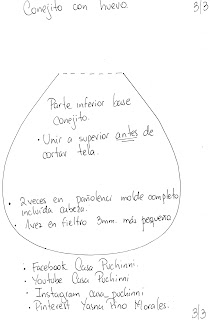 Conejito con huevo. 3/3
Parte inferior base
Conejito.
• Unir a superior antes de
cortar tela.
• 2 veces en pañolenci molde completo
incluída cabeza.
• 1 vez en fieltro 3mm. más pequeño
• Facebook Casa Puchinni.
• Youtube Casa Puchinni
• Instagram casa_puchinni
• Pinterest Yasna Pino Morales.
3/3